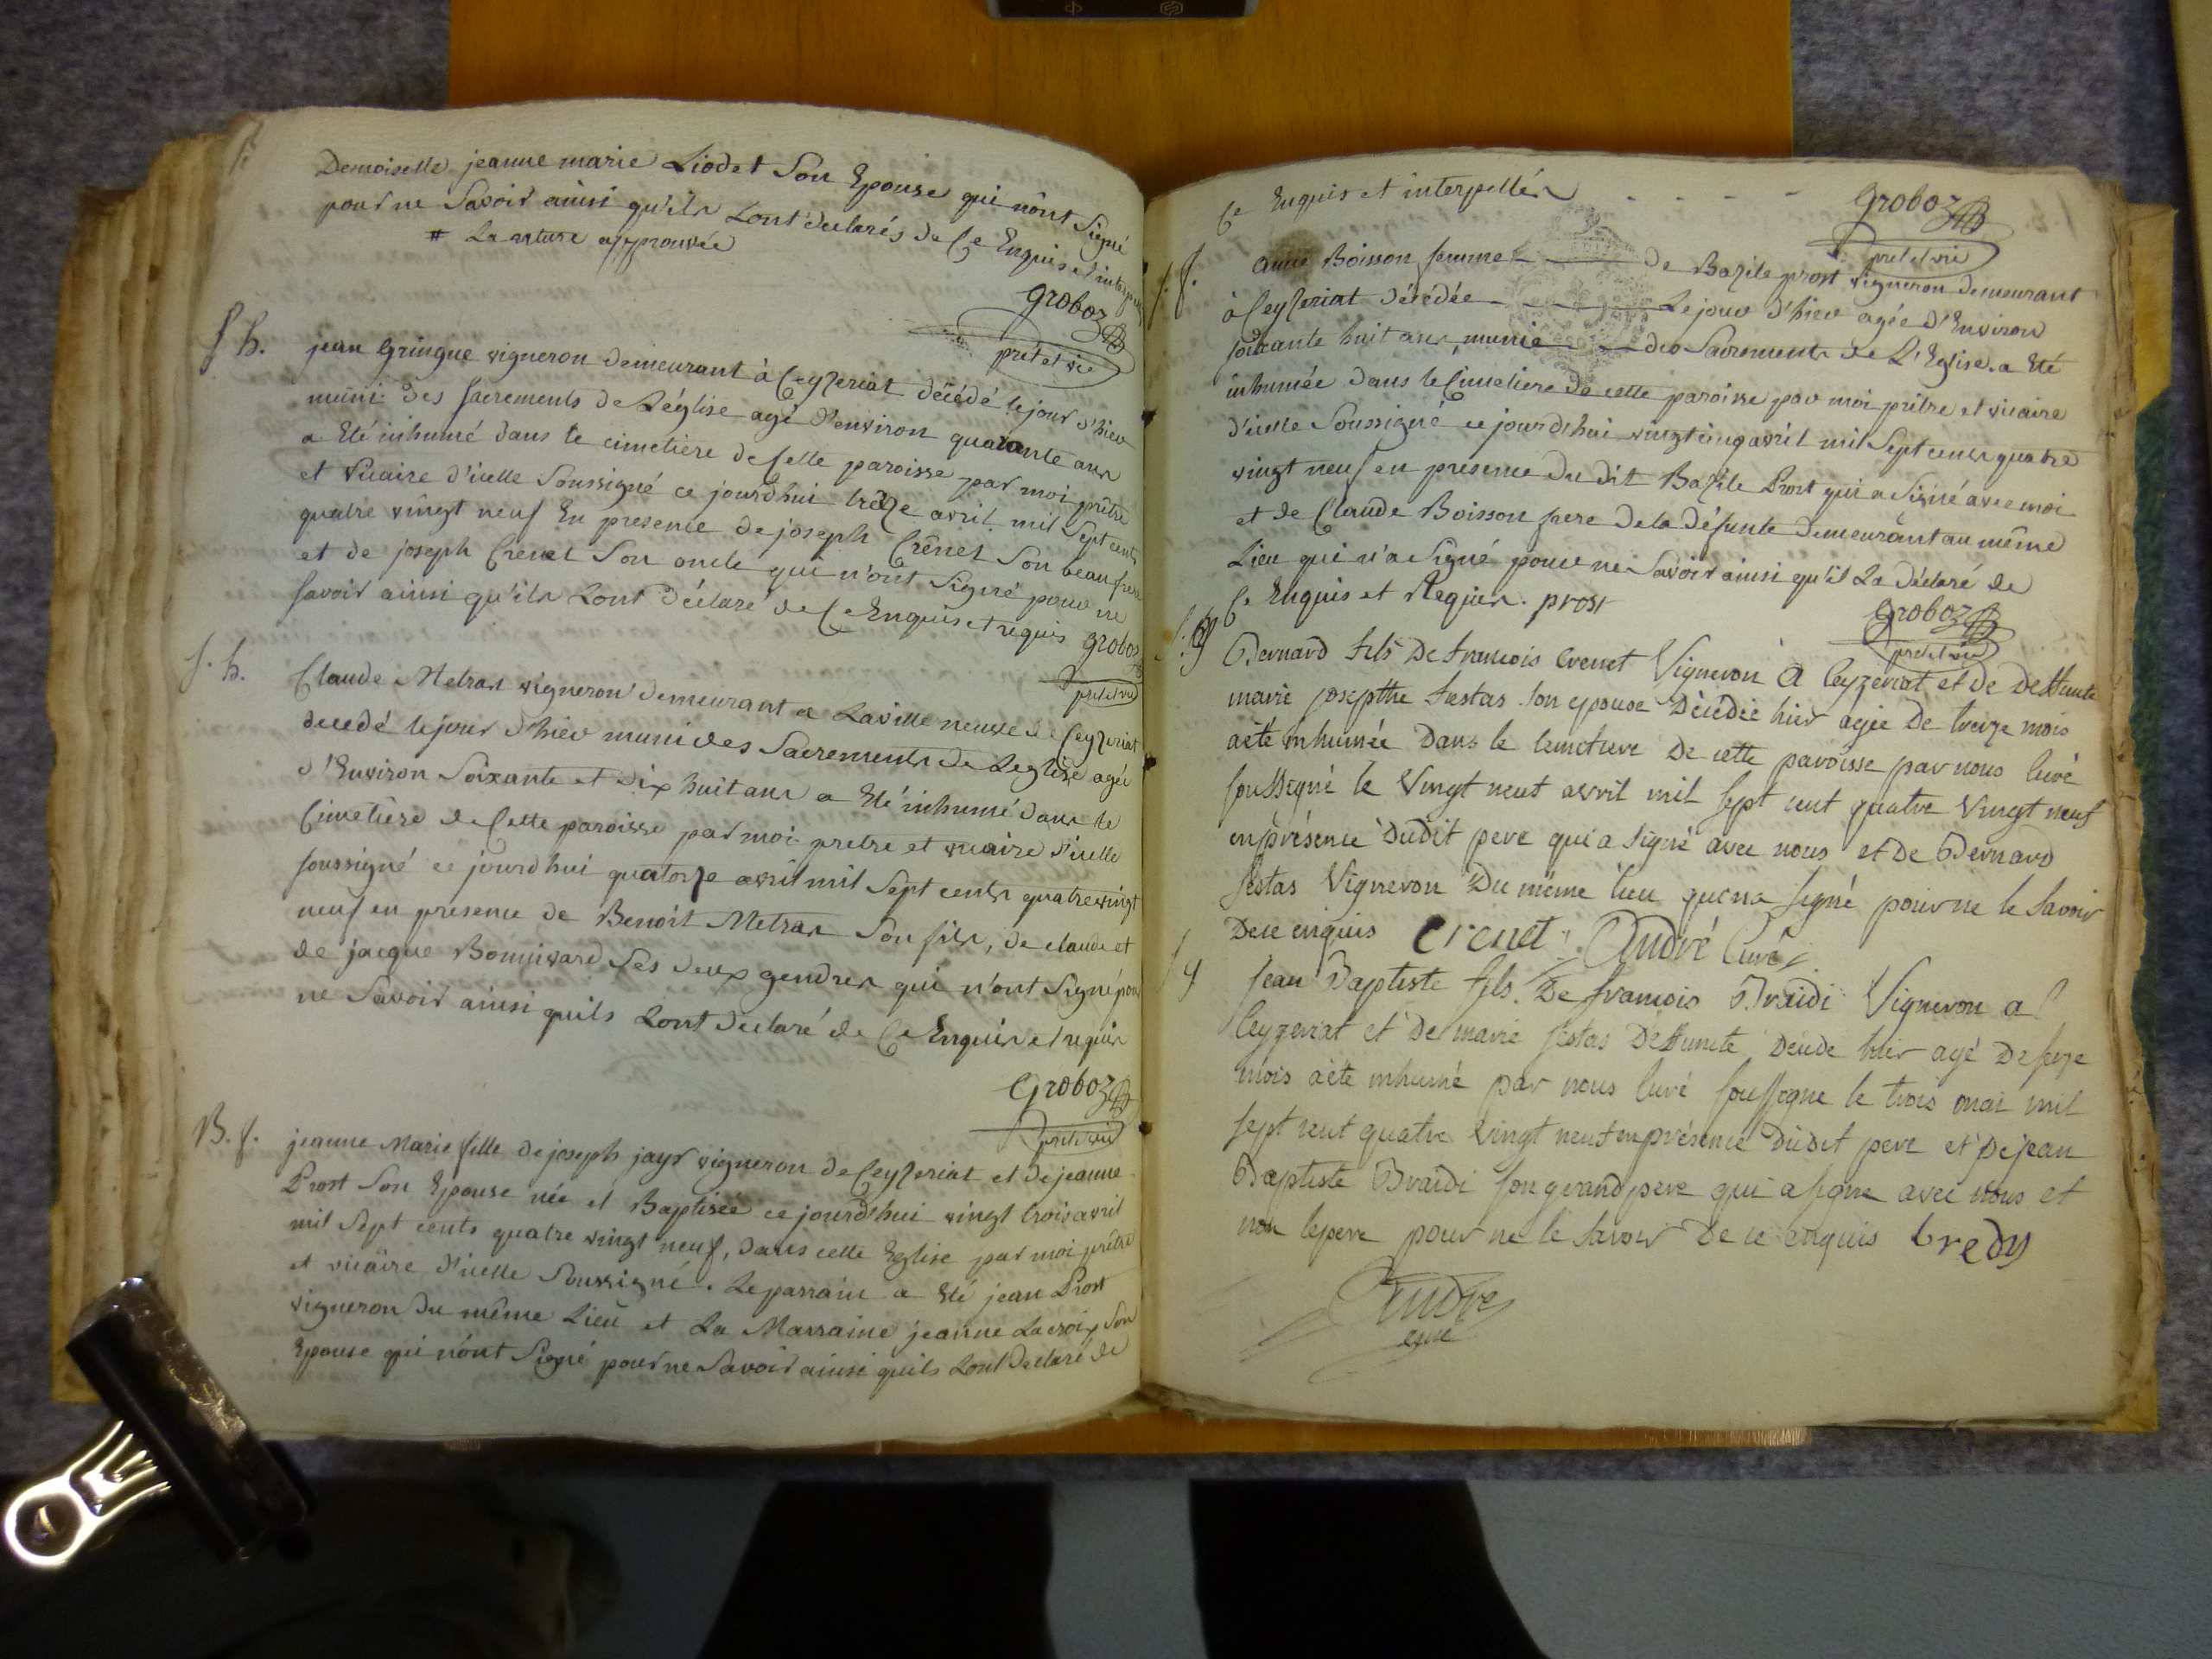 Demoiselle jeanne marie Liodet Son Epouse qui nônt Signé
pour ne Savoir ainsi qu'ils Lont declarés de Ce Enquis et
# La rature approuvée
Groboz
pret et vic
S h. jean Gringue vigneron demeurant à Ceyzeriat décédé le jour d'hier
muni des sacrements de L'église agé d'environ quarante ans
a Eté inhumé dans le cimetière de Cette paroisse par moi prêtre
et Vicaire d'icelle Soussigné ce jourdhui treize avril mil Sept cents
quatre vingt neuf En presence de joseph Crênet Son beau frere
et de joseph Crenet Son oncle qui n'ont Signé pour ne
savoir ainsi qu'ils Lont déclaré de Ce Enquis et requis Groboz
pret et vic
S. h. Claude Metras vigneron demeurant a Laville neuve de Ceyzeriat
decedé le jour d'hier muni des Sacrements de Leglise agée
d'Environ Soixante et dix huit ans a Eté inhumé dans le
Cimetière de Cette paroisse par moi pretre et vicaire d'icelle
soussigné ce jourdhui quatorze avril mil Sept cents quatre vingt
neuf en presence de Benoit Metras Son fils, de claude et
de jacque Bonnivard Ses deux gendres qui n'ont Signé pour
ne Savoir ainsi quils Lont declaré de Ce Enquis et requis
Groboz
pret et vic
B. f. jeanne Marie fille de joseph jayr vigneron de Ceyzeriat et de jeanne
Prost Son Epouse née et Baptisée ce jourd'hui vingt trois avril
mil Sept cents quatre vingt neuf, dans cette Eglise par moi prêtre
et vicaire d'icelle Soussigné. Le parrain a Eté jean Prost
vigneron du même Lieu et La Marraine jeanne Lacroix Son
Epouse qui n'ont Signé pour ne Savoir ainsi quils Lont Declaré de
Ce Enquis et interpellés - - - - Groboz
pret et vic
S. f. anne Boisson femme de Bazile prost vigneron demeurant
à Ceyzeriat décédée Le jour d'hier agée d'Environ
soixante huit ans, munie des Sacrements de L'Eglise. a Eté
inhumée dans le Cimetiere de cette paroisse par moi prêtre et vicaire
d'icelle Soussigné ce jourd'hui vingt cinq avril mil Sept cents quatre
vingt neuf en presence du dit Bazile Prost qui a Signé avec moi
et de Claude Boisson frere de la défunte demeurant au même
Lieu qui n'a Signé pour ne Savoir ainsi qu'il La Déclaré de
Ce Enquis et Requis. prost
Groboz
pret et vic
Bernard fils De francois Crenet Vigneron A Ceyzeriat et de Deffunte
marie josepthe festas son epouse Décédée hier agée De treize mois
aété inhumée Dans le Cemetiere De cette paroisse par nous Curé
soussigné le Vingt neuf avril mil sept cent quatre Vingt neuf
enprésence Dudit pere qui a signé avec nous et De Bernard
festas Vigneron Du même lieu qui na signé pour ne le savoir
Dece enquis Crenet André Curé
Jean Baptiste fils De francois Braidi Vigneron a
Ceyzeriat et De marie festas Deffuncte, Décidé hier agé De seize
mois aété inhumé par nous Curé soussigné le trois mai mil
sept cent quatre Vingt neuf enprésence Dudit pere et De jean
Baptiste Braidi son grand pere qui a signé avec nous et
non lepere pour ne le savoir De ce enquis bredy
André
cure